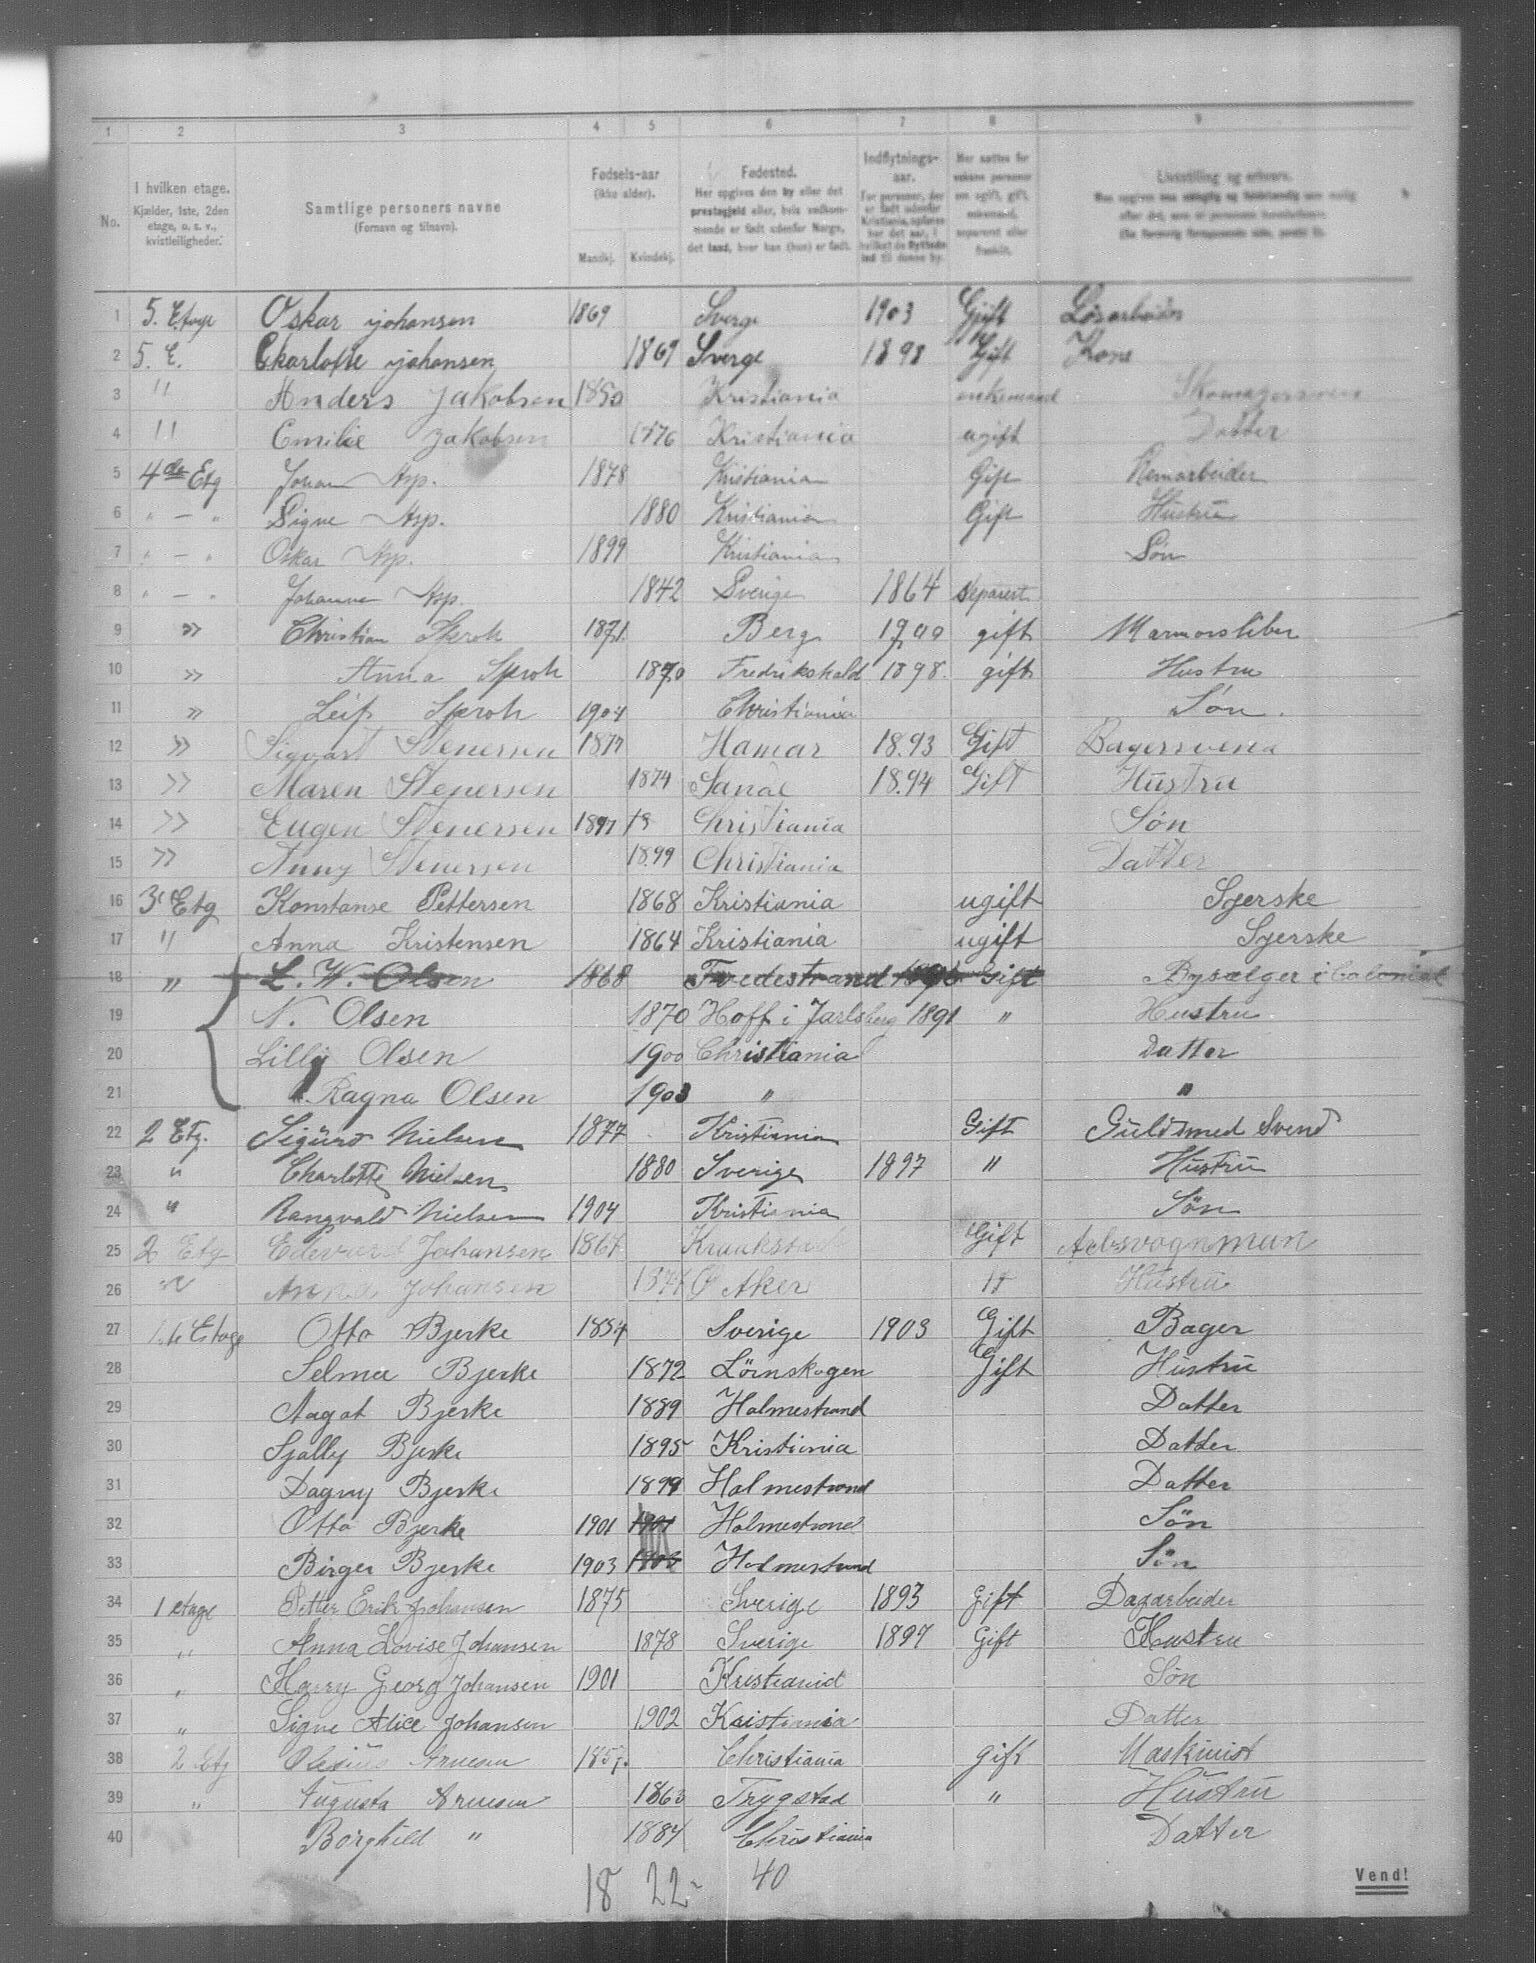 1 2 3 4 5 6 7 8 9
No. I hvilken etage. Kjælder, 1ste, 2den etage, o. s. v., kvistleiligheder. Samtlige personers navne (Fornavn og tilnavn). Fødsels-aar (ikke alder). Mandkj. Kvindekj. Fødested. Her opgives den by eller det prestegjeld eller, hvis vedkommende er født udenfor Norge, det land, hvor han (hun) er født. Indflytnings-aar. For personer, der er født udenfor Kristiania, opføres her det aar, i hvilket de flyttede ind til denne by. Her sættes for voksne personer om ugift, gift, enkemand, separeret eller fraskilt. Livsstilling og erhverv.
1 5. Etage Oskar Johansen 1869 Sverge 1903 Gift Løsarbeider
2 5. E. Charlotte Johansen 1869 Sverge 1898 Gift Kone
3 " Anders Jakobsen 1850 Kristiania enkemand Skomagersven
4 " Emilie Jakobsen 1876 Kristiania ugift Datter
5 4de Etg Johan Asp. 1878 Kristiania Gift Stenarbeider
6 " — " Signe Asp. 1880 Kristiania Gift Hustru
7 " — " Oskar Asp. 1899 Kristiania Søn
8 " — " Johanne Asp. 1842 Sverige 1864 Separert
9 " Christian 1871 Berg 1900 gift Marmorsliber
10 " Anna 1870 Fredrikshald 1898. gift Hustru
11 " Leif 1904 Christiania Søn.
12 " Sigvart Stenersen 1877 Hamar 18.93 Gift Bagersvena
13 " Maren Stenersen 1874 Sande 18.94 Gift Hustru
14 " Eugen Stenersen 1897 Christiania Søn
15 " Anny Stenersen 1899 Christiania Datter
16 3 Etg Konstanse Pettersen 1868 Kristiania ugift Syerske
17 " Anna Kristensen 1864 Kristiania ugift Syerske
18 " L. W. Olsen 1868 Tvedestrand Gift Bysælger i Colonial
19 N. Olsen 1870 Hoff i Jarlsberg 1891 " Hustru
20 Lilly Olsen 1900 Christiania Datter
21 Ragna Olsen 1903 " "
22 2 Etg. Sigurd Nielsen 1877 Kristiania Gift Guldsmed Svend
23 " Charlotte Nielsen 1880 Sverige 1897 " Hustru
24 " Rangvald Nielsen 1904 Kristiania Søn
25 2 Etg Edevard Johansen 1867 Kraakstad Gift Arbsvognman
26 " Anna Johansen Ø Aker " Hustru
27 1ste Etage Otto Bjerke 1854 Sverige 1903 Gift Bager
28 Selma Bjerke 1872 Lörnskogen Gift Hustru
29 Aagot Bjerke 1889 Holmestrand Datter
30 Sjally Bjerke 1895 Kristiania Datter
31 Dagny Bjerke 1899 Holmestrand Datter
32 Otto Bjerke 1901 1901 Holmestrand Sön
33 Birger Bjerke 1903 1903 Holmestrand Sön
34 1 etage Petter Erik Johansen 1875 Sverige 1893 Gift Dagarbeider
35 " Anna Lovise Johansen 1878 Sverige 1897 Gift Hustru
36 " Harry Georg Johansen 1901 Kristianid Søn
37 " Signe Alice Johansen 1902 Kristiania Datter
38 2 Etg Olesius Arnesen 1857. Christiania gift Maskinist
39 " Augusta Arnesen 1863 Trygstad " Hustru
40 Borghild " 1884 Christiania Datter
18 22 40
Vend!